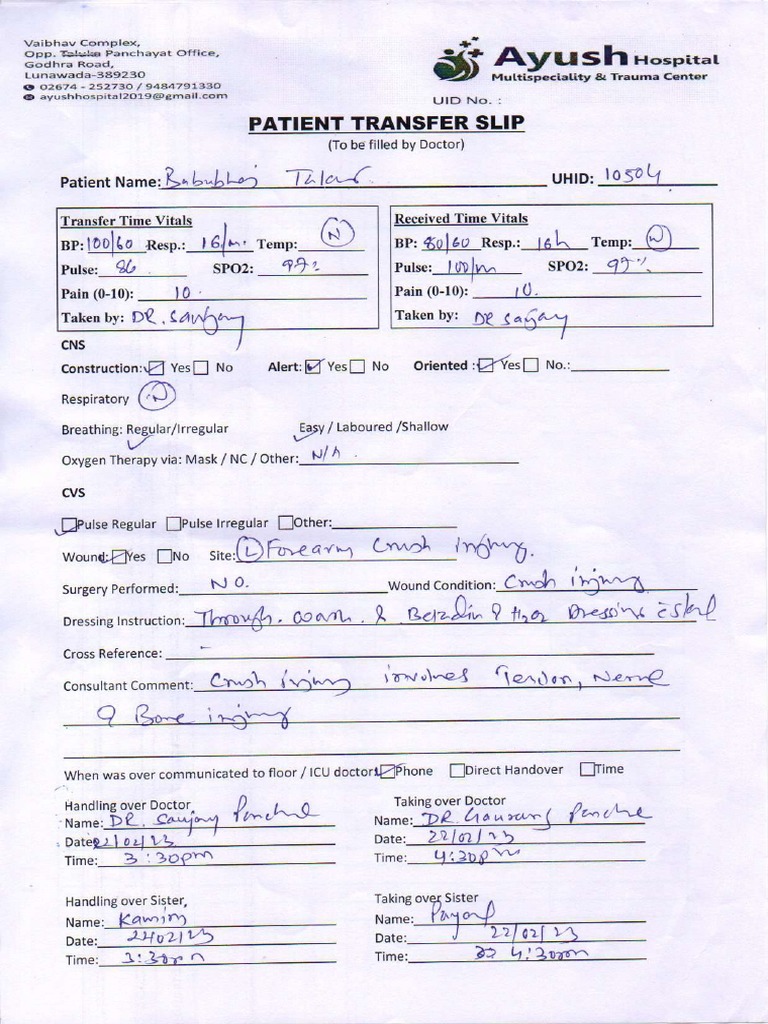 Vaibhav Complex,
Opp. Taluka Panchayat Office,
Godhra Road,
Lunawada-389230
02674 - 252730 / 9484791330
ayushhospital2019@gmail.com
Ayush Hospital
Multispeciality & Trauma Center
UID No. :
PATIENT TRANSFER SLIP
(To be filled by Doctor)
Patient Name: Babubhai UHID: 10504
Transfer Time Vitals
BP: 100/60 Resp.: 16/m. Temp: N
Pulse: 86 SPO2: 97%
Pain (0-10): 10.
Taken by: DR. Sanjay
Received Time Vitals
BP: 80/60 Resp.: 16 Temp: N
Pulse: 100/m SPO2: 97%
Pain (0-10): 10.
Taken by: DR Sanjay
CNS
Construction: Yes No Alert: Yes No Oriented : Yes No.:
Respiratory N
Breathing: Regular/Irregular Easy / Laboured /Shallow
Oxygen Therapy via: Mask / NC / Other: N/A.
CVS
Pulse Regular Pulse Irregular Other:
Wound: Yes No Site: L Forearm Crush injury.
Surgery Performed: NO. Wound Condition: Crush injury
Dressing Instruction: Through. wash & & H2O2 Dressing
Cross Reference: -
Consultant Comment: Crush injury involves Tendon, Nerve
& Bone injury
When was over communicated to floor / ICU doctor: Phone Direct Handover Time
Handling over Doctor
Name: DR. Sanjay Panchal
Date: 22/02/23
Time: 3:30pm
Taking over Doctor
Name: DR. Gaurang Panchal
Date: 22/02/23
Time: 4:30pm
Handling over Sister,
Name:
Date: 22/02/23
Time: 3:30pm
Taking over Sister
Name: Payal
Date: 22/02/23
Time: 4:30pm